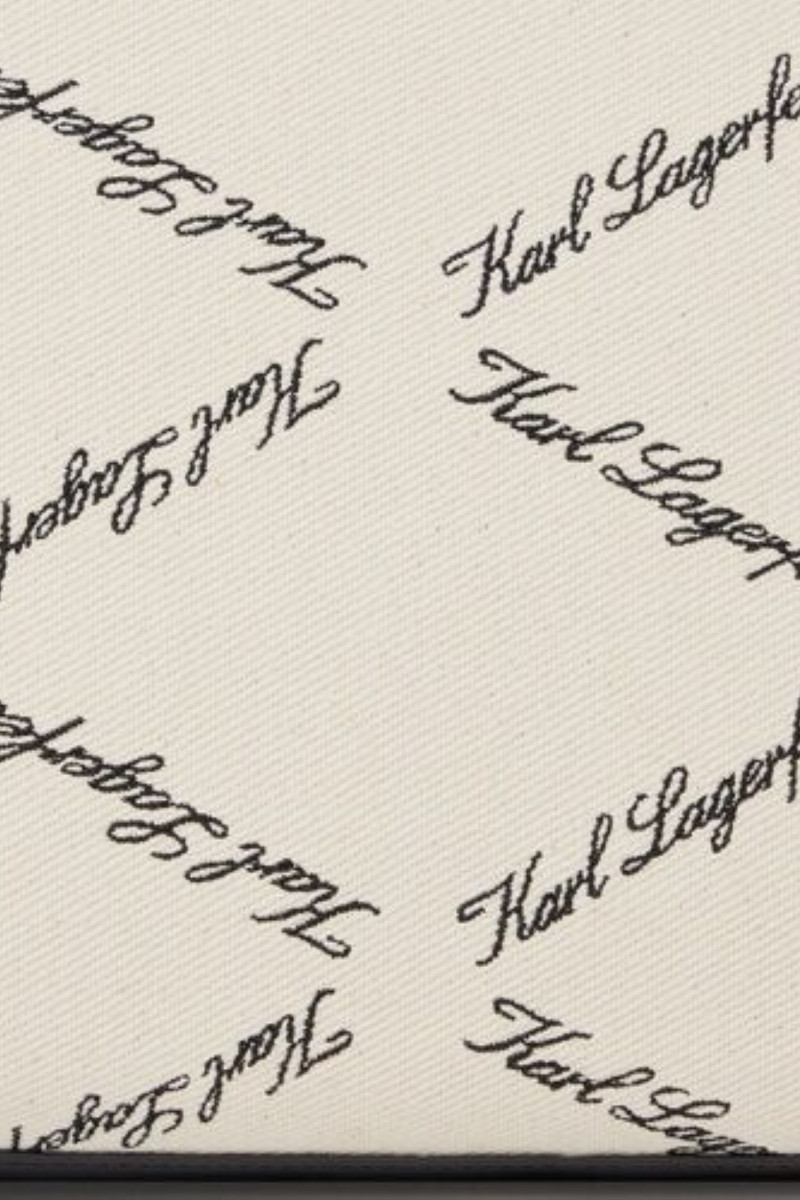 Karl Lagerfe
Karl Lagerfe
Karl Lagerf
Karl Lagerf
Karl Lagerfe
Karl Lagerf
Karl Lager
Karl Lage